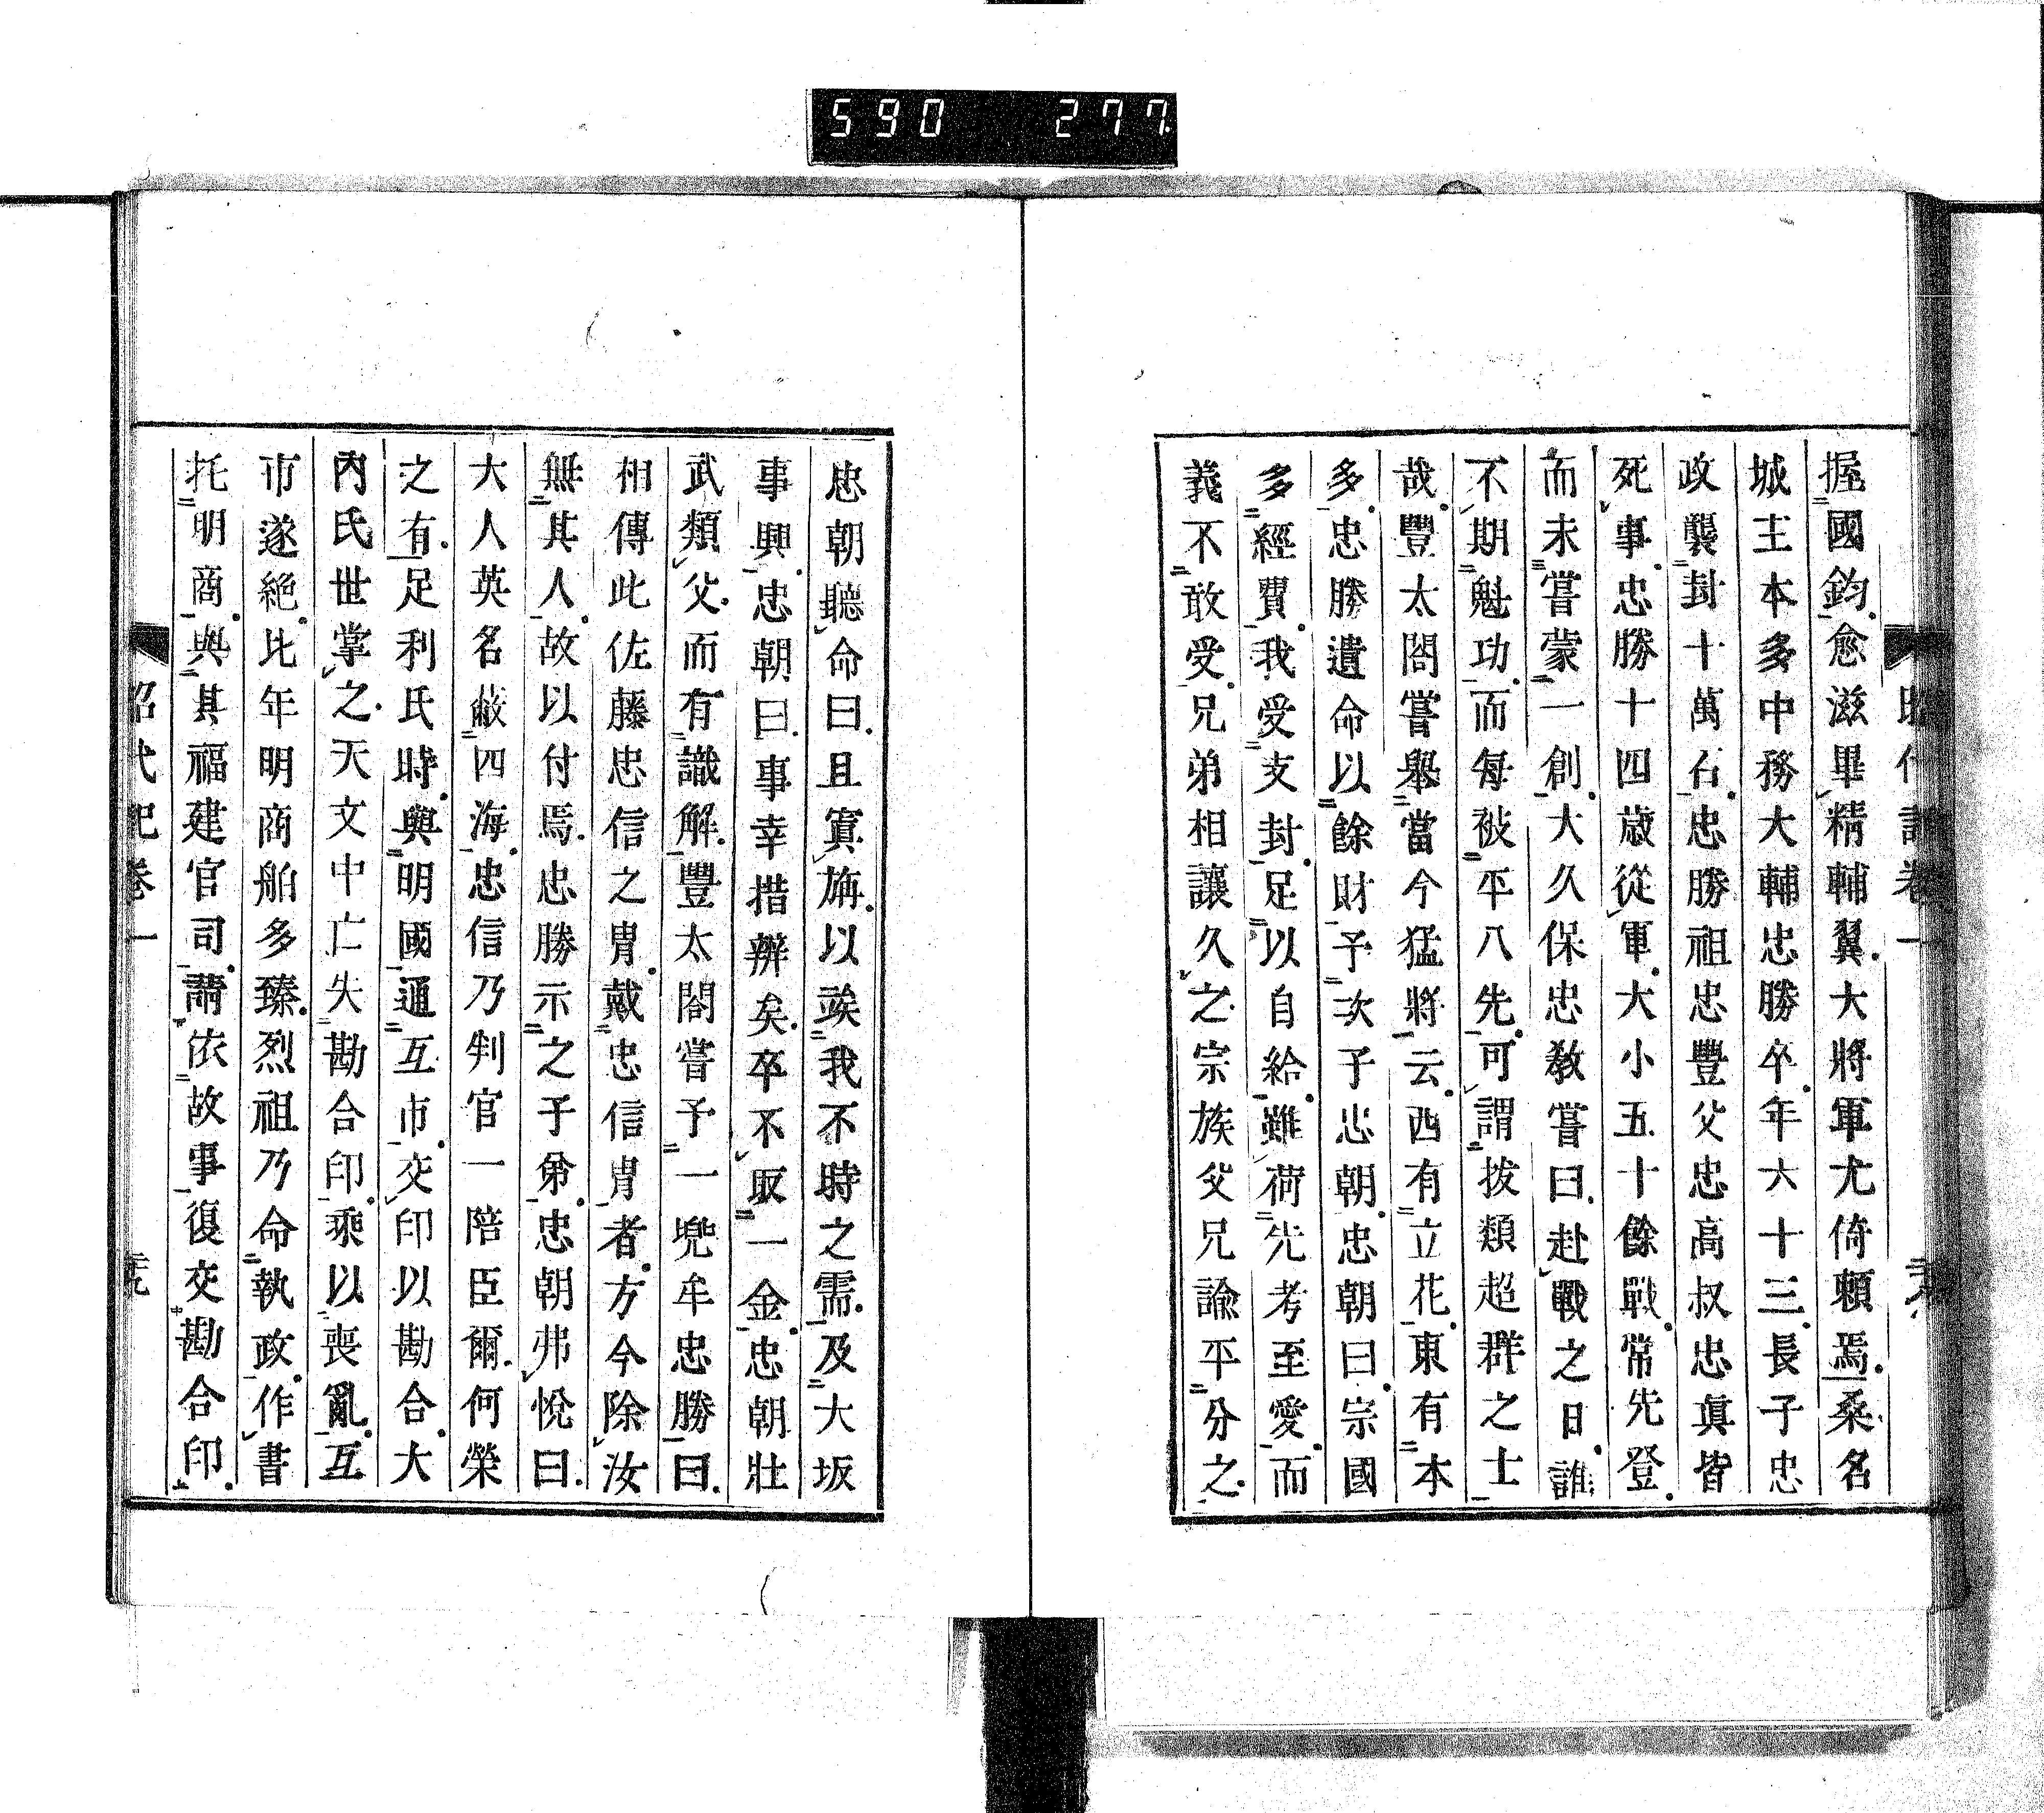 590 277
握國鈞愈滋畢精輔翼大將軍尤倚頼焉桑名
城主本多中務大輔忠勝卒年六十三長子忠
政襲封十萬石忠勝祖忠豐父忠高叔忠眞皆
死事忠勝十四歳從軍大小五十餘戰常先登
而未嘗蒙一創大久保忠教嘗曰赴戰之日誰
不期魁功而每被平八先可謂拔類超群之士
哉豐太閤嘗舉當今猛將云西有立花東有本
多忠勝遺命以餘財予次子忠朝忠朝曰宗國
多經費我受支封足以自給雖荷先考至愛而
義不敢受兄弟相讓久之宗族父兄諭平分之
忠朝聽命曰且寘旃以竢我不時之需及大坂
事興忠朝曰事幸措辨矣卒不取一金忠朝壯
武類父而有識解豐太閤嘗予一兜牟忠勝曰
相傳此佐藤忠信之冑戴忠信冑者方今除汝
無其人故以付焉忠勝示之子弟忠朝弗悅曰
大人英名蔽四海忠信乃判官一陪臣爾何榮
之有足利氏時與明國通互市交印以勘合大
內氏世掌之天文中亡失勘合印乘以喪亂互
市遂絕比年明商舶多臻烈祖乃命執政作書
托明商與其福建官司請依故事復交勘合印
昭代記卷一